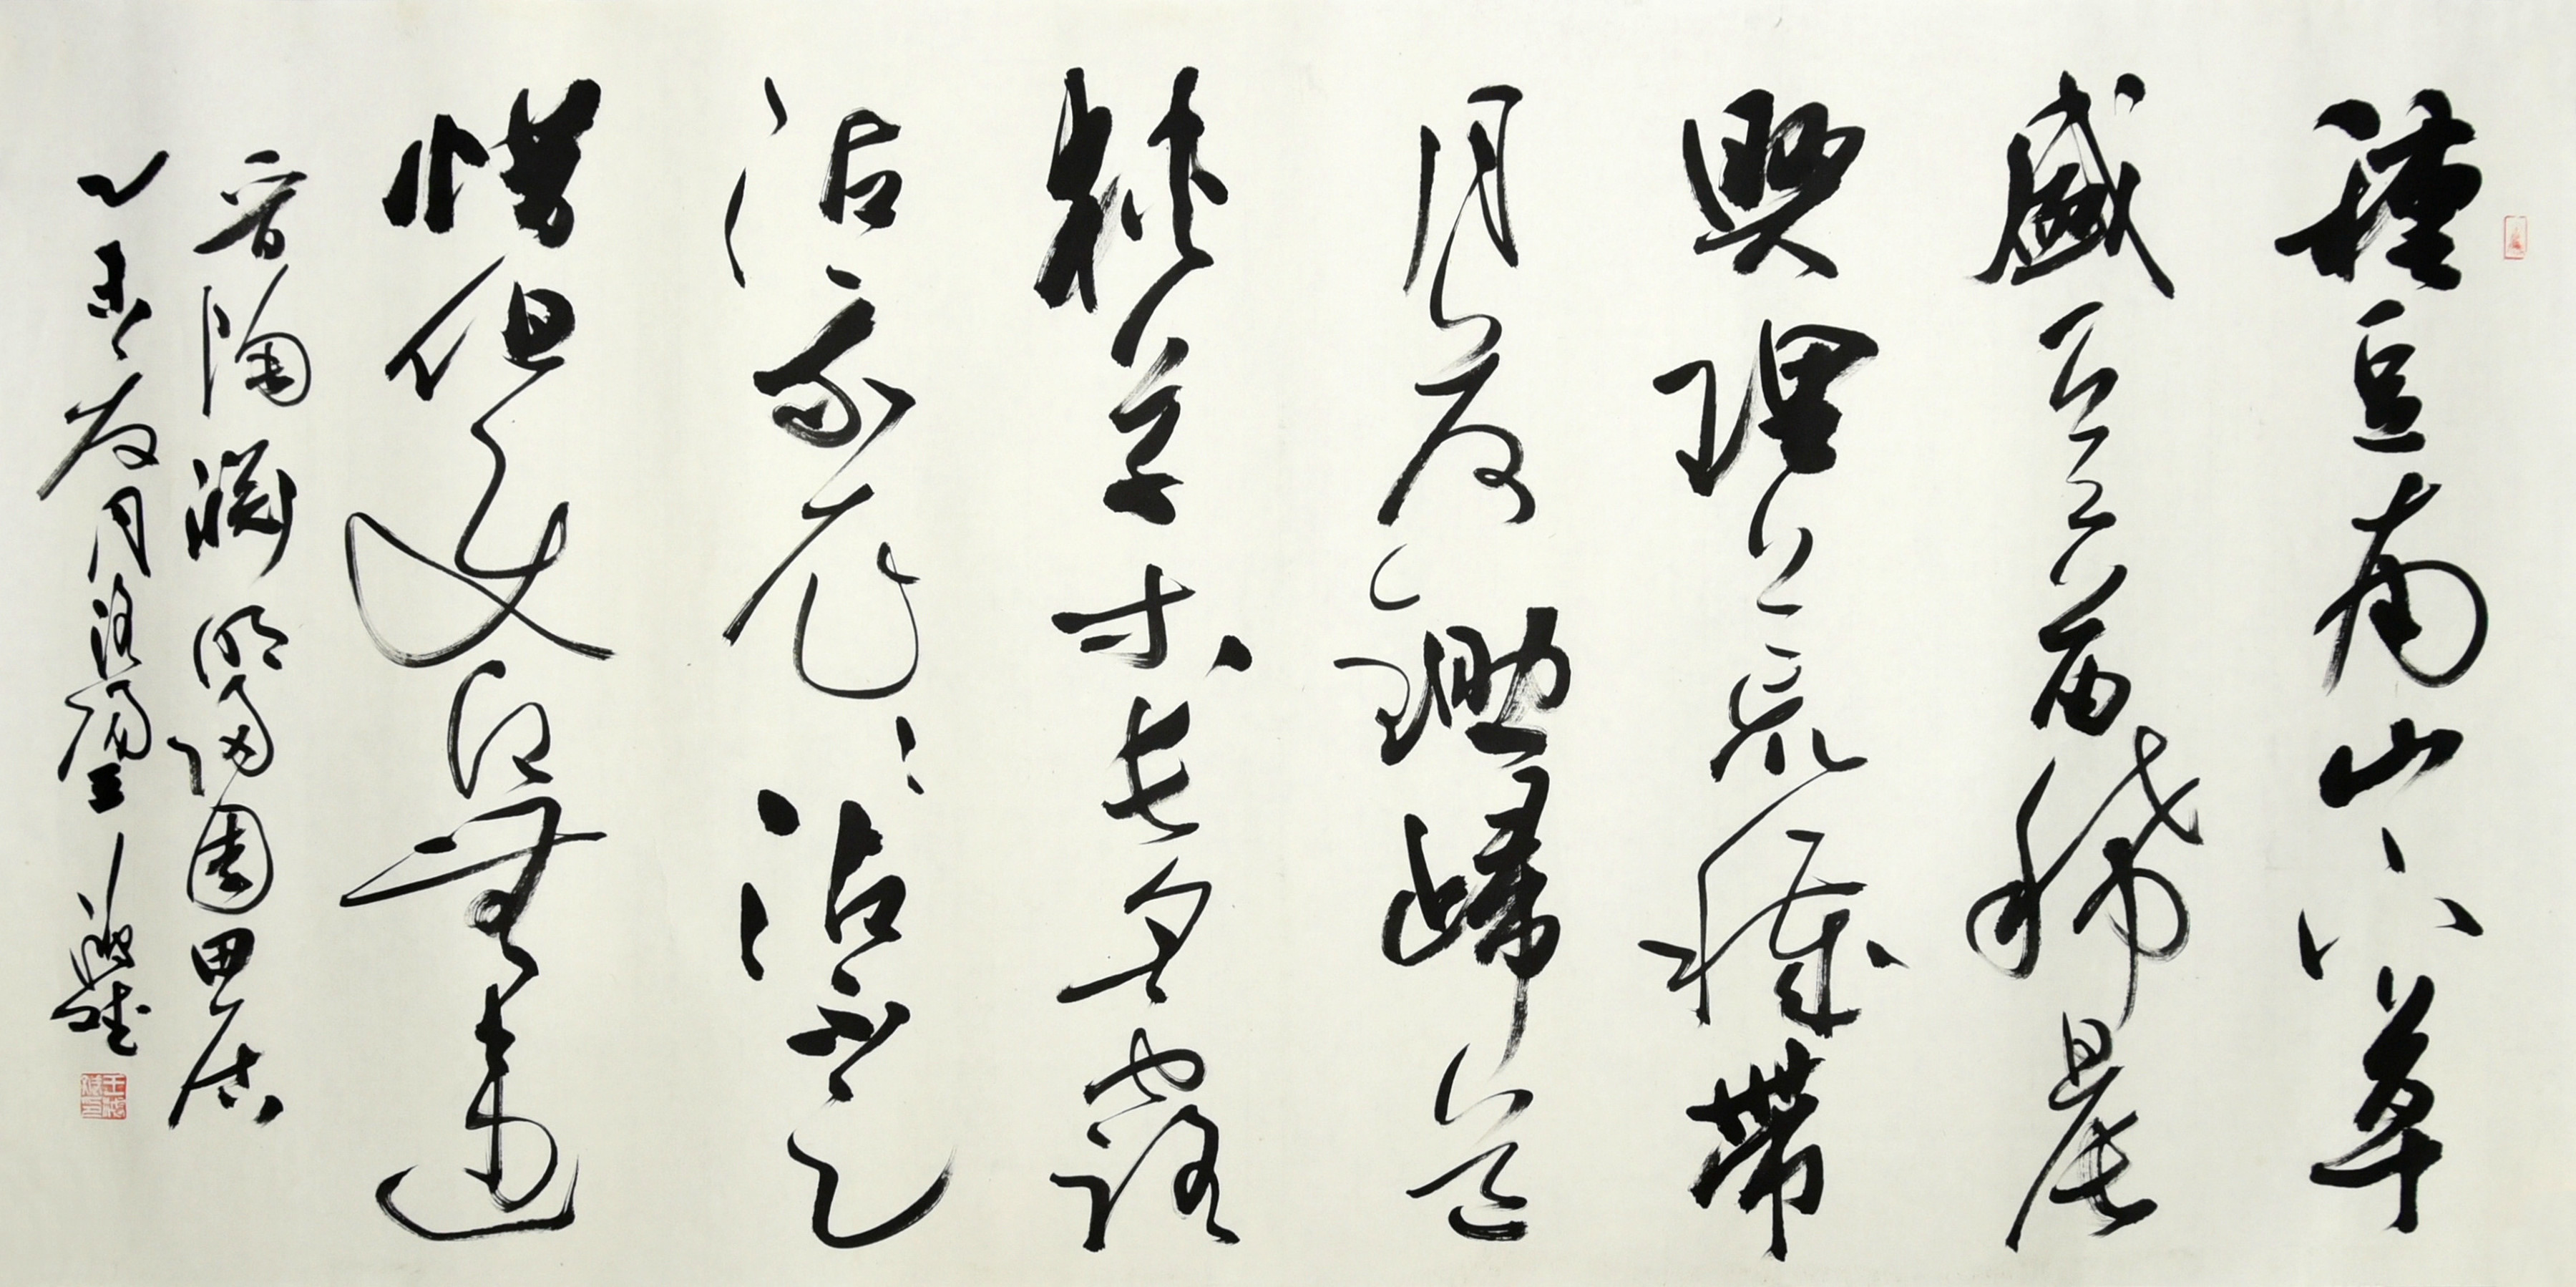 種豆南山下草
盛豆苗稀晨
興理荒穢帶
月荷鋤歸道
狹草木長夕露
沾我衣々沾不足
惜但使願無違
晋陶淵明歸園田居
乙 月